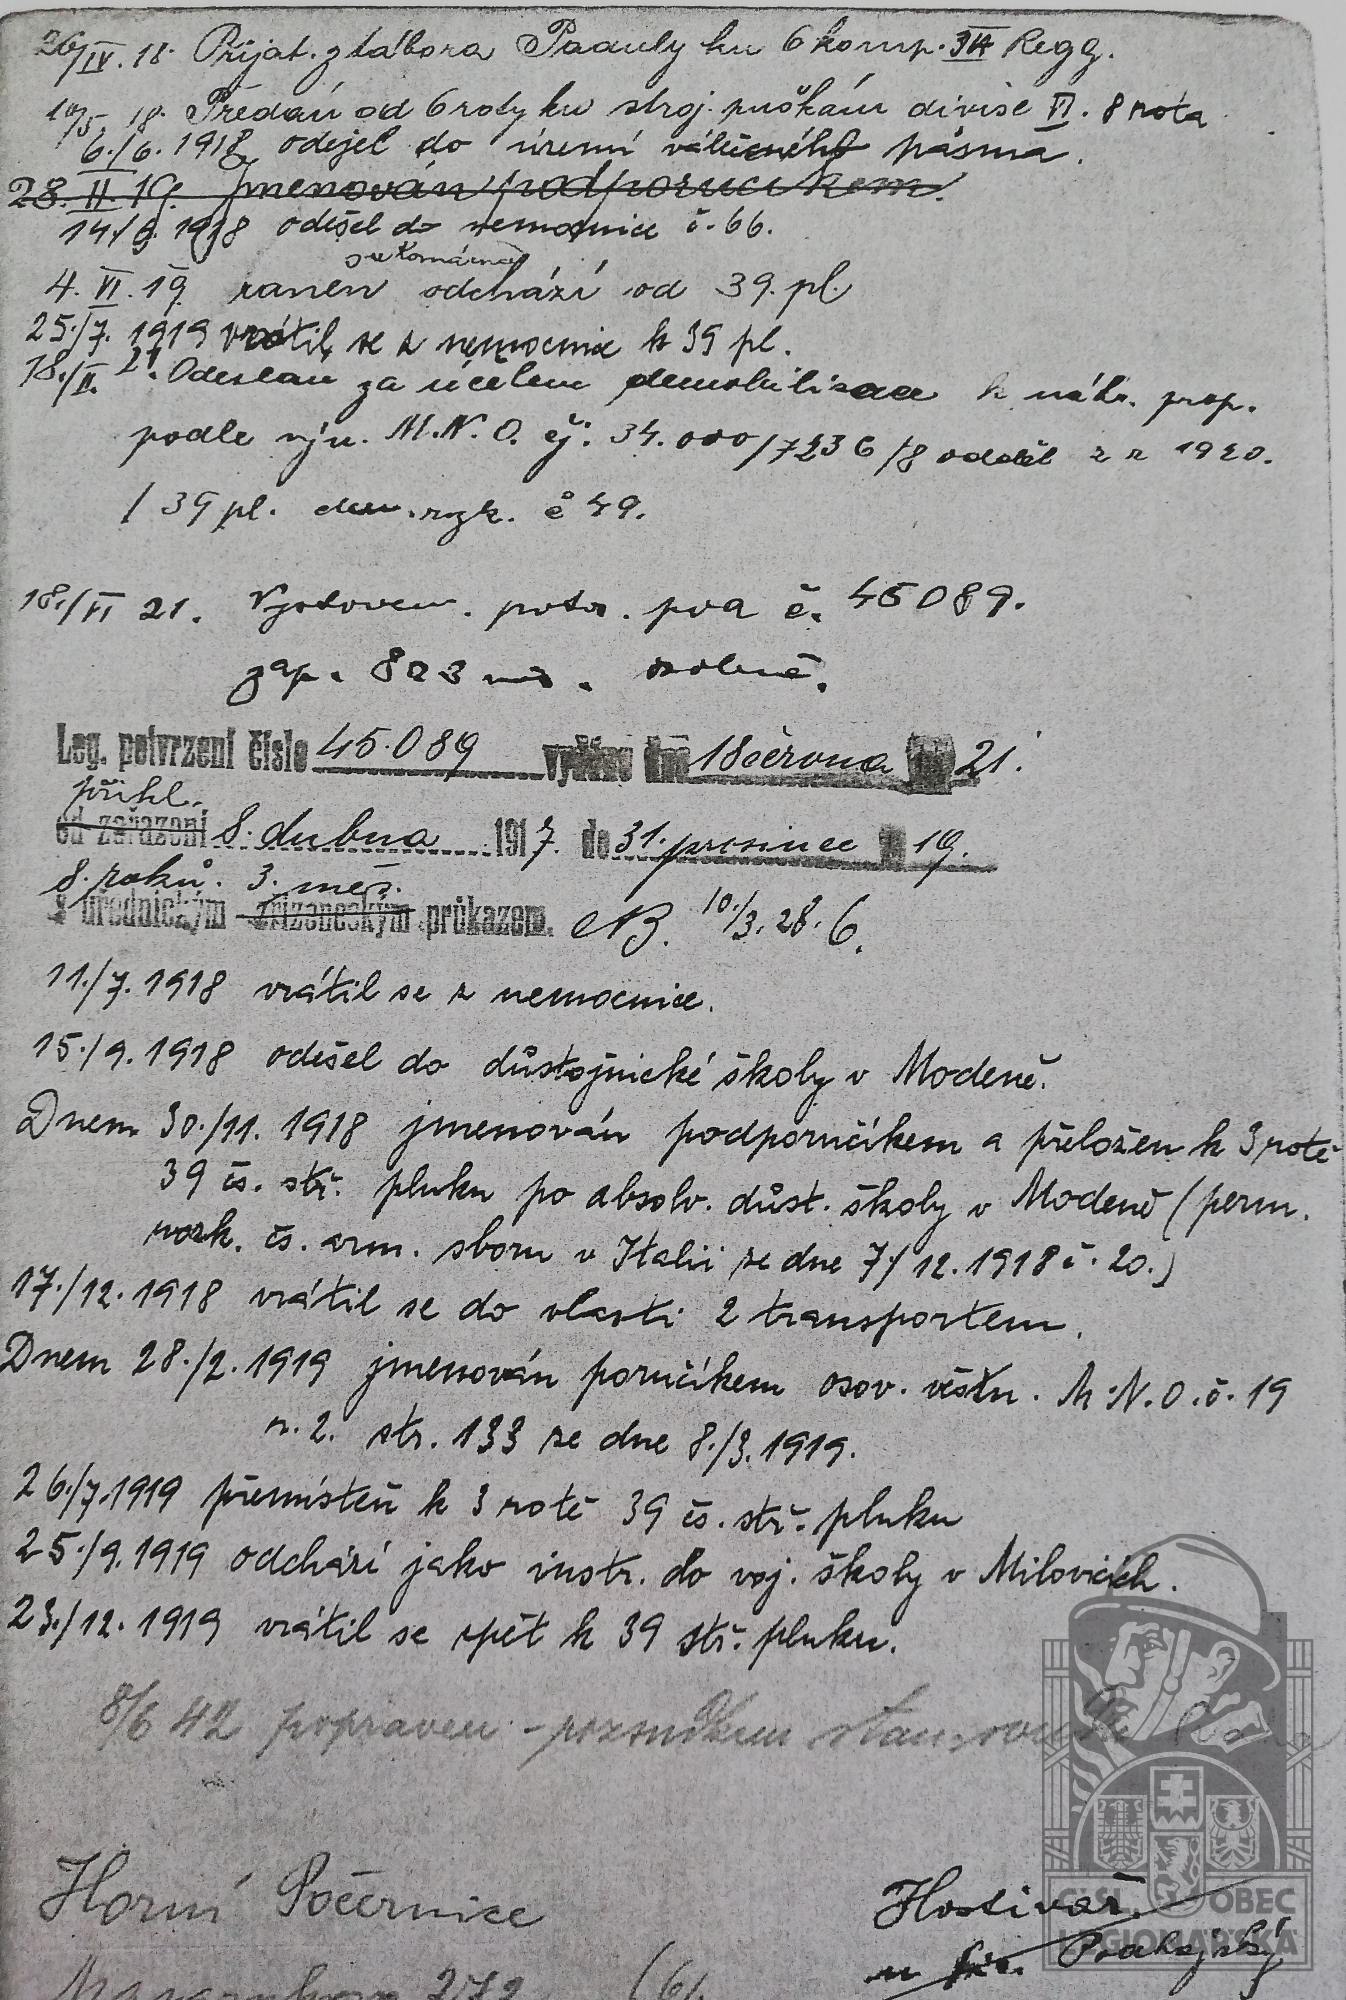 26/IV. 18. Přijat. z tábora Paduly ku 6 komp. 34 Regg.
10/5. 18. Předán od 6 roty ku stroj. puškám divise VI. 8 rota
6./6. 1918 odejel do území válečného pásma.
28. II. 19. Jmenován podporučíkem.
14/6. 1918 odešel do nemocnice č. 66.
u Komárna
4. VI. 19. raněn odchází od 39. pl.
25./7. 1919 vrátil se z nemocnice k 39 pl.
18./II. 21. Odeslán za účelem demobilisace k náhr. prap.
podle výn. M.N.O. čj: 34.000/7236/8 odděl z r 1920.
/ 39 pl. rozk. č 49.
18./VI 21. Vyhotoven. potvr. pod č. 45089.
zap. osobně.
Leg. potvrzení číslo 45.089 vydáno dne 18 června 1921.
přihl.
od zařazení 8. dubna 1917. do 31. prosince 1919.
8. roků. 3. měs.
S úřednickým zřízeneckým průkazem. NB. 10./3. 28. 6.
11./7. 1918 vrátil se z nemocnice.
15./9. 1918 odešel do důstojnické školy v Modeně.
Dnem 30./11. 1918 jmenován podporučíkem a přeložen k 3 rotě
39 čs. stř. pluku po absolv. důst. školy v Modeně (perm.
rozk. čs. arm. sboru v Italii ze dne 7./12. 1918 č. 20.)
17./12. 1918 vrátil se do vlasti 2 transportem.
Dnem 28./2. 1919 jmenován poručíkem osov. věstn. M.N.O. č. 19
r. 2. str. 133 ze dne 8./3. 1919.
26./7. 1919 přemístěn k 3 rotě 39 čs. stř. pluku
25./9. 1919 odchází jako instr. do voj. školy v Milovicích.
23./12. 1919 vrátil se zpět k 39 stř. pluku.
8/6 42 popraven - rozsudkem
Horní Počernice
Hostivař.
u Pražský
272
ČSL. OBEC
LEGIONÁŘSKÁ